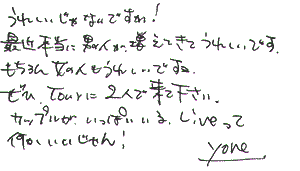 うれしいじゃないですか!
最近本当に男の人が増えてきてうれしいです。
もちろん女の人もうれしいですヨ。
ぜひ、Tourに2人で来て下さい。
カップルがいっぱいいる、Liveって
何かいいじゃん!
yone